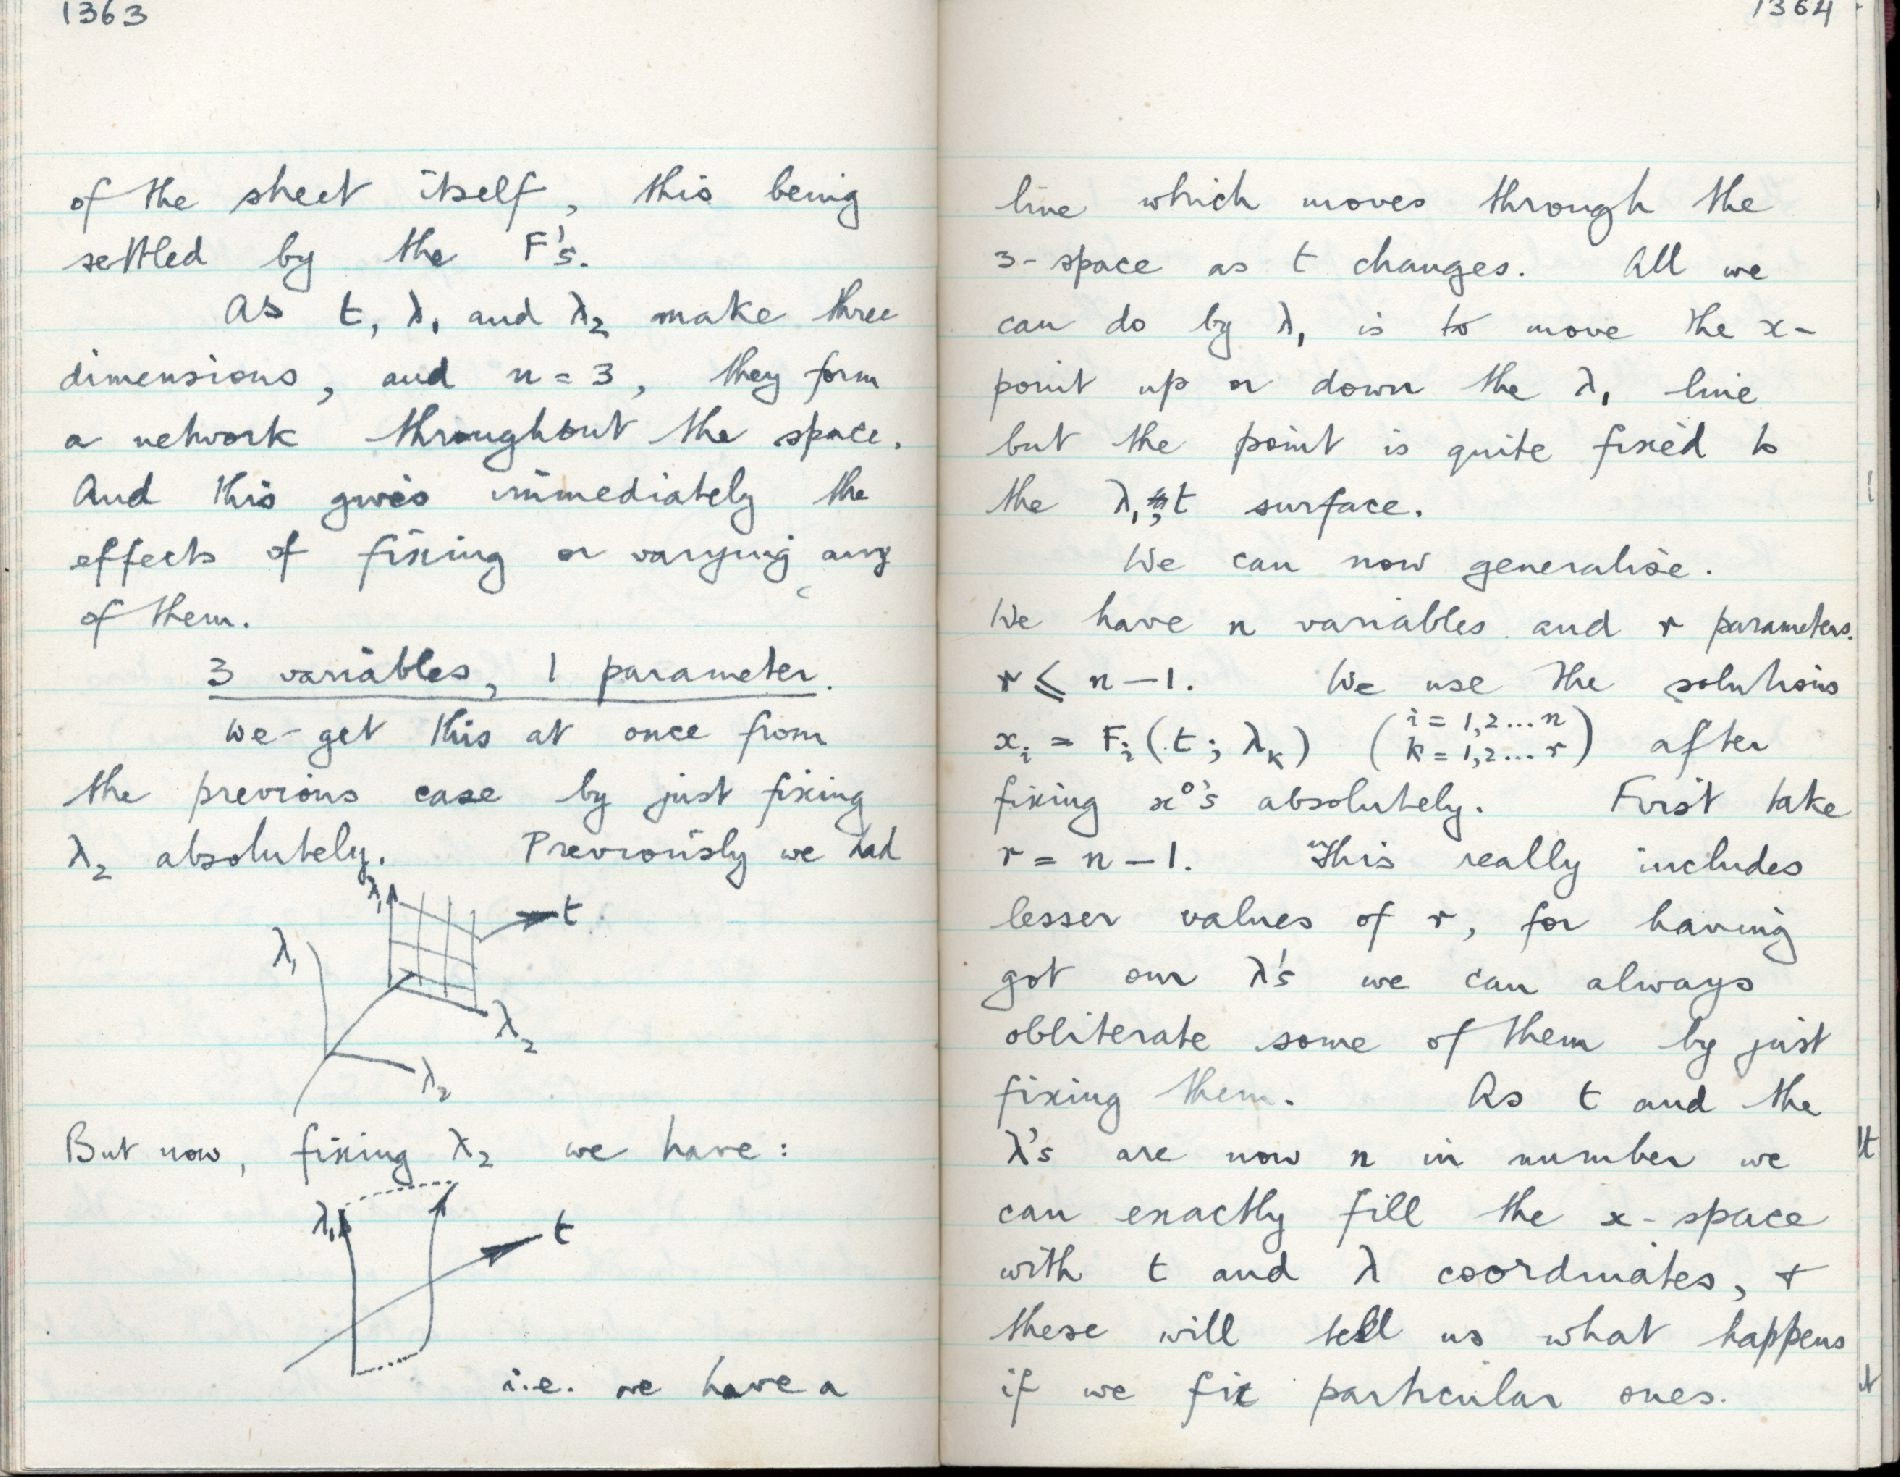 1363
of the sheet itself, this being
settled by the F's.
As t, λ₁ and λ₂ make three
dimensions, and n = 3, they form
a network throughout the space.
And this gives immediately the
effects of fixing or varying any
of them.
3 variables, 1 parameter.
We get this at once from
the previous case by just fixing
λ₂ absolutely. Previously we had
λ₁ t
λ₁
λ₂
λ₂
But now, fixing λ₂ we have:
λ₁ t
i.e. we have a
1364
line which moves through the
3-space as t changes. All we
can do by λ₁ is to move the x-
point up or down the λ₁ line
but the point is quite fixed to
the λ₁, t surface.
We can now generalise.
We have n variables and r parameters.
r ⩽ n - 1. We use the solutions
xᵢ = Fᵢ (t; λₖ) (i = 1,2...n k = 1,2...r) after
fixing x⁰'s absolutely. First take
r = n - 1. This really includes
lesser values of r, for having
got our λ's we can always
obliterate some of them by just
fixing them. As t and the
λ's are now n in number we
can exactly fill the x-space
with t and λ coordinates, +
these will tell us what happens
if we fix particular ones.